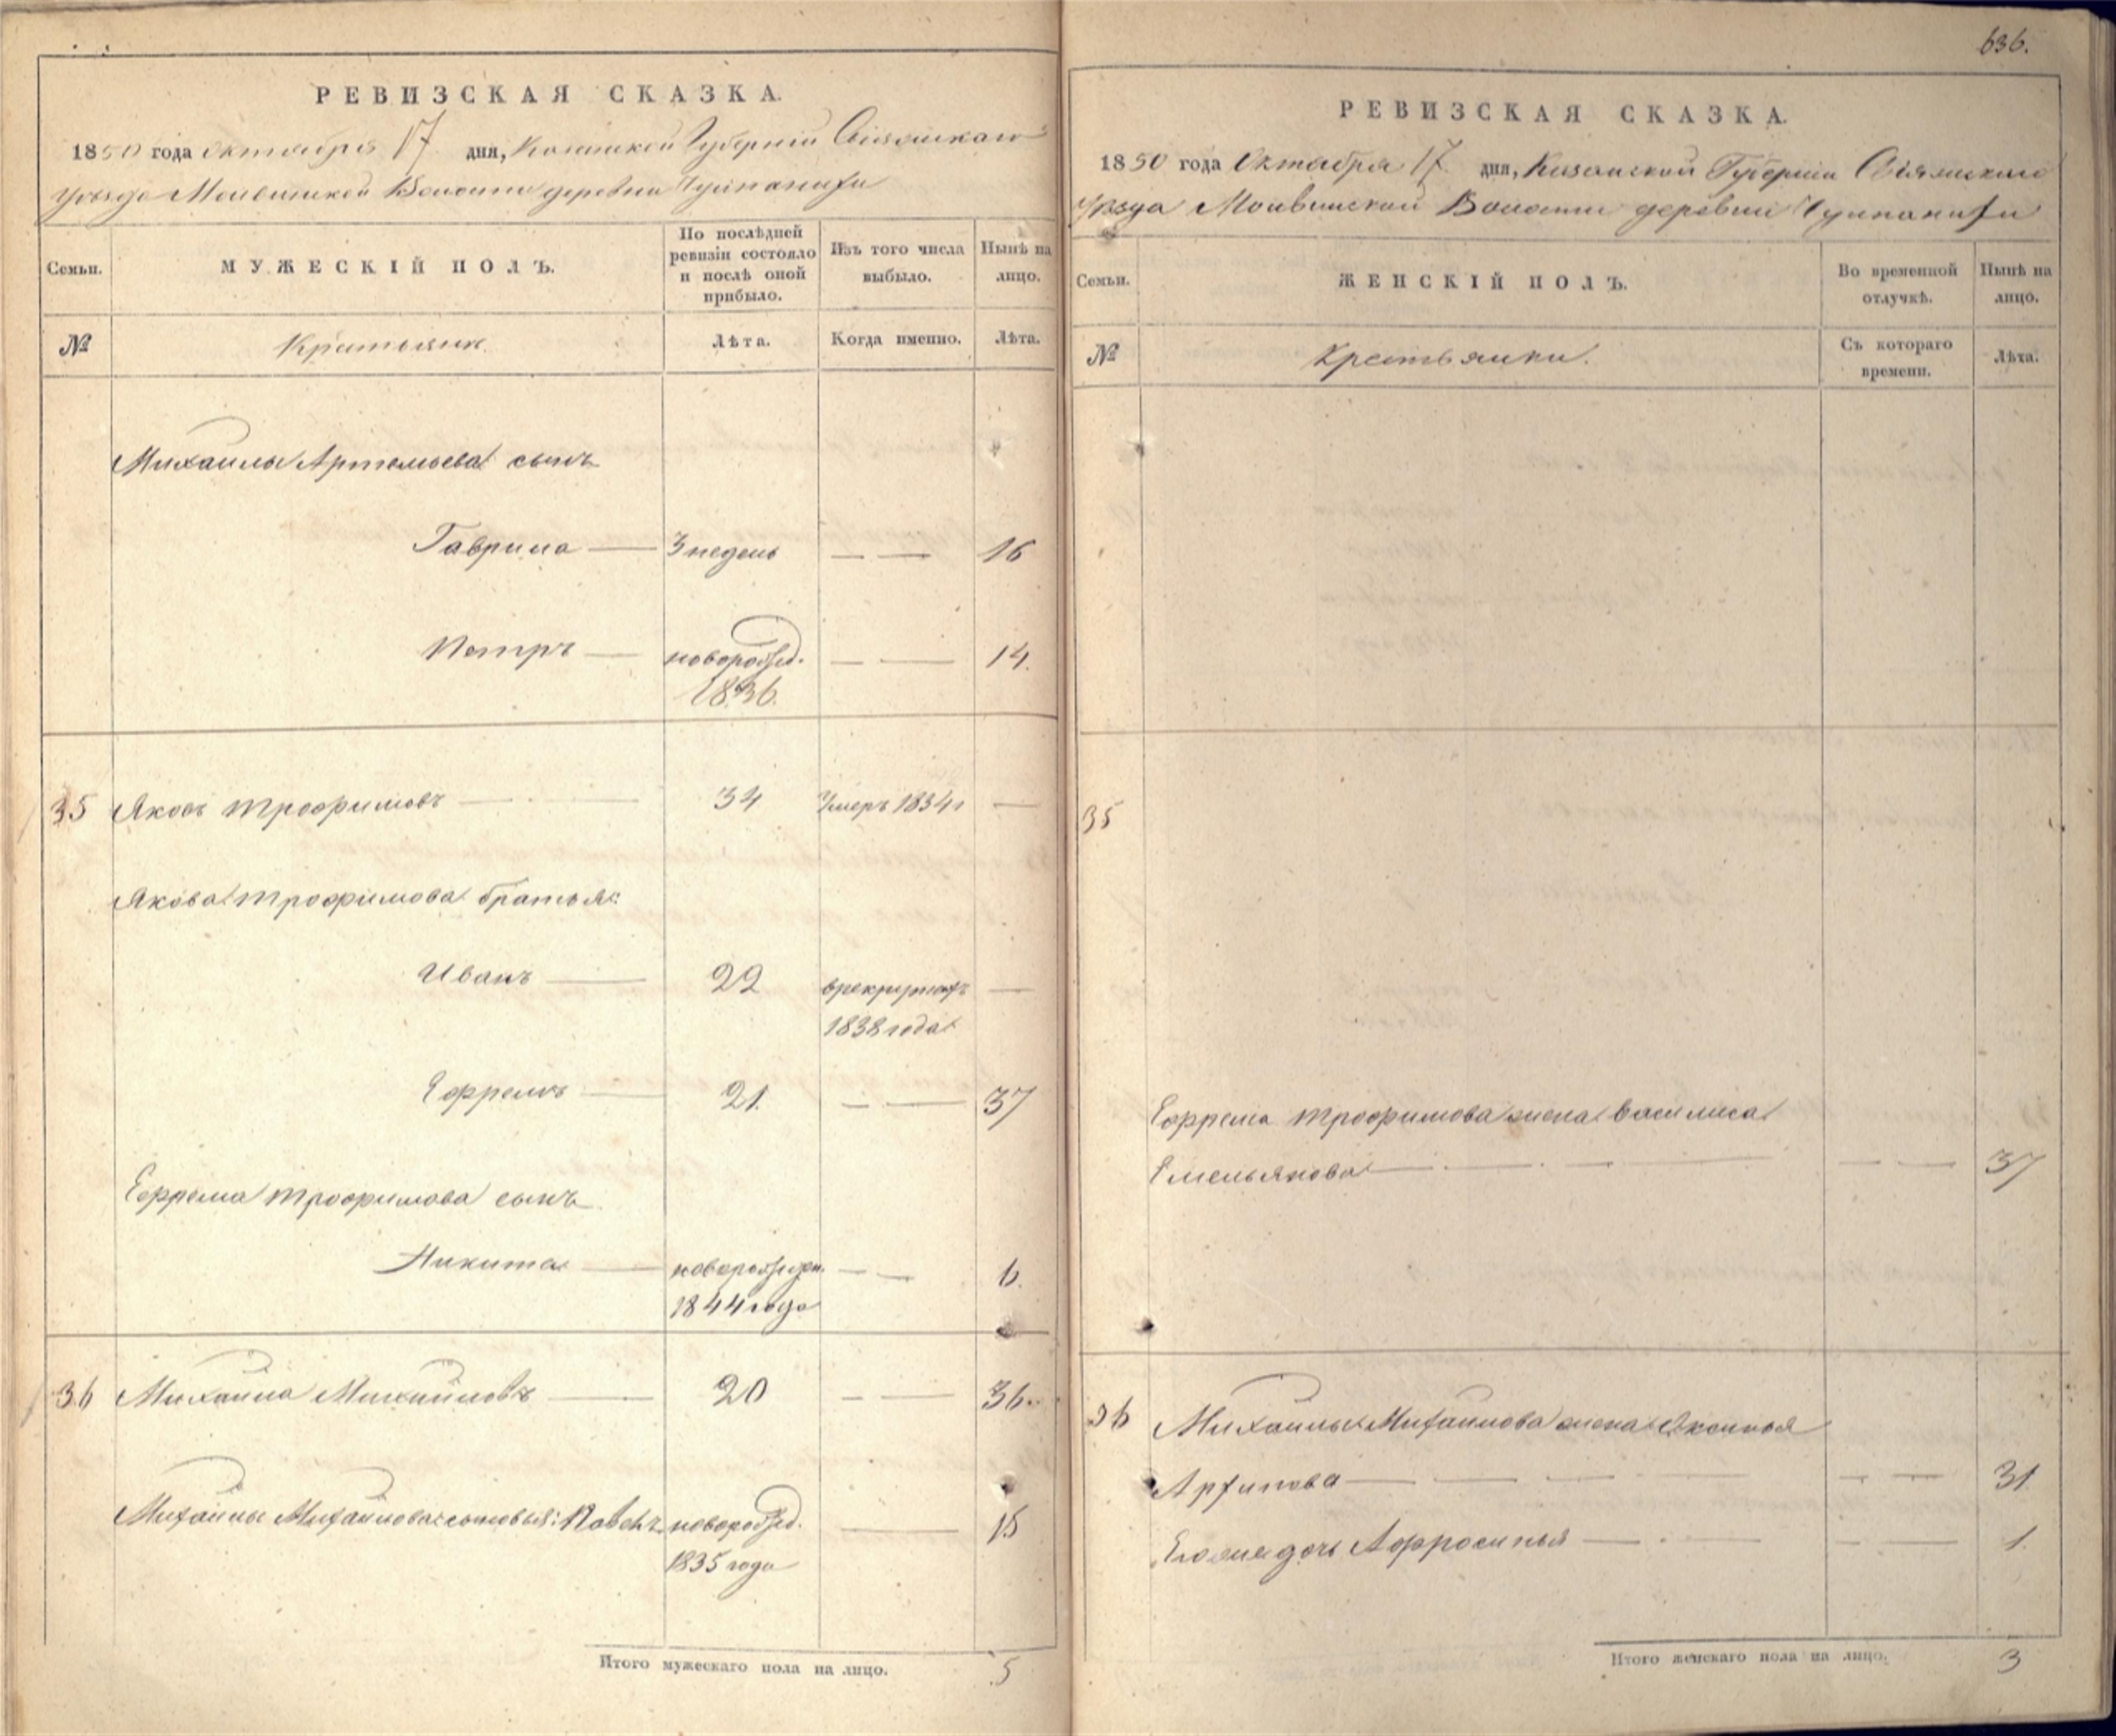 636.
РЕВИЗСКАЯ СКАЗКА.
1850 года Октября 17 дня, Казанской Губернiи Свiяжскаго
Уѣзда Молвинской Волости деревни
Семьи.
МУЖЕСКІЙ ПОЛЪ.
По послѣдней ревизіи состояло и послѣ оной прибыло.
Изъ того числа выбыло.
Нынѣ на лицо.
№
Крестьяне.
Лѣта.
Когда именно.
Лѣта.
Михаилы Артемьева сынъ
Гаврила — 3 недель — — 16
Петръ — новорожд. — — 14.
1836.
35 Яковъ Трофимовъ — 34 Умеръ 1834г —
Якова Трофимова братья:
Иванъ — 22 в рекрутахъ —
1838 года
Ефремъ — 21. — — 37
Ефрема Трофимова сынъ
Никита — новорожден. — — 6.
1844 года
36 Михаила Михайловъ — 20 — — 36.
Михайлы Михайлова сыновья: Павелъ новорожд. — 15
1835 года
Итого мужескаго пола на лицо. 5
РЕВИЗСКАЯ СКАЗКА.
1850 года Октября 17 дня, Казанской Губернiи Свiяжскаго
Уѣзда Молвинской Волости деревни
Семьи.
ЖЕНСКІЙ ПОЛЪ.
Во временной отлучкѣ.
Нынѣ на лицо.
№
Крестьянки.
Съ котораго времени.
Лѣта.
35
Ефрема Трофимова жена Василиса
Емельянова — — — — — 37
36 Михаилы Михайлова жена Аксинья
Архипова — — — — — 31
Его же дочь Афросинья — — — — 1.
Итого женскаго пола на лицо. 3